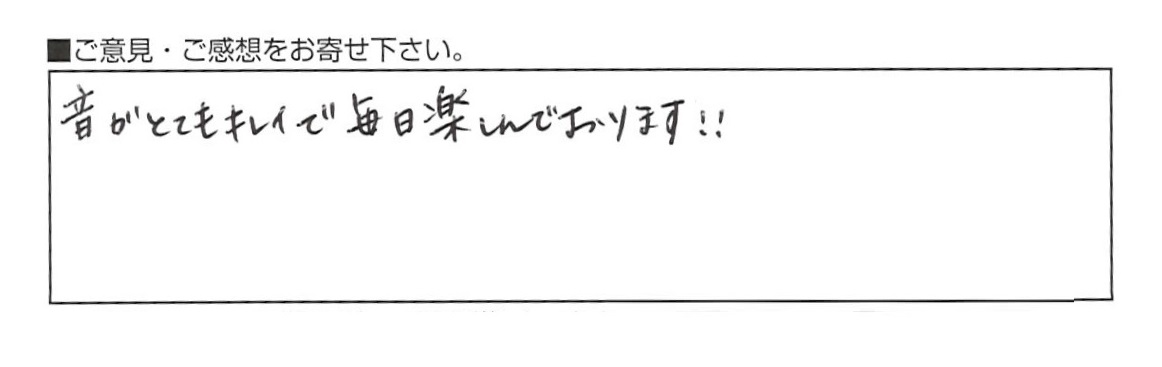 ■ご意見・ご感想をお寄せ下さい。
音がとてもキレイで毎日楽しんでおります!!